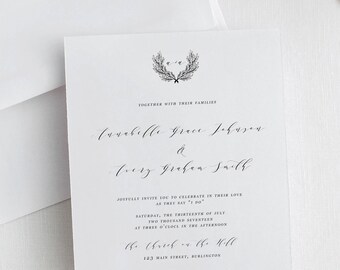 a & a
TOGETHER WITH THEIR FAMILIES
Annabelle Grace Johnson
&
Avery Graham Smith
JOYFULLY INVITE YOU TO CELEBRATE IN THEIR LOVE
AS THEY SAY "I DO"
SATURDAY, THE THIRTEENTH OF JULY
TWO THOUSAND SEVENTEEN
AT THREE O'CLOCK IN THE AFTERNOON
The Church on the Hill
123 MAIN STREET, BURLINGTON